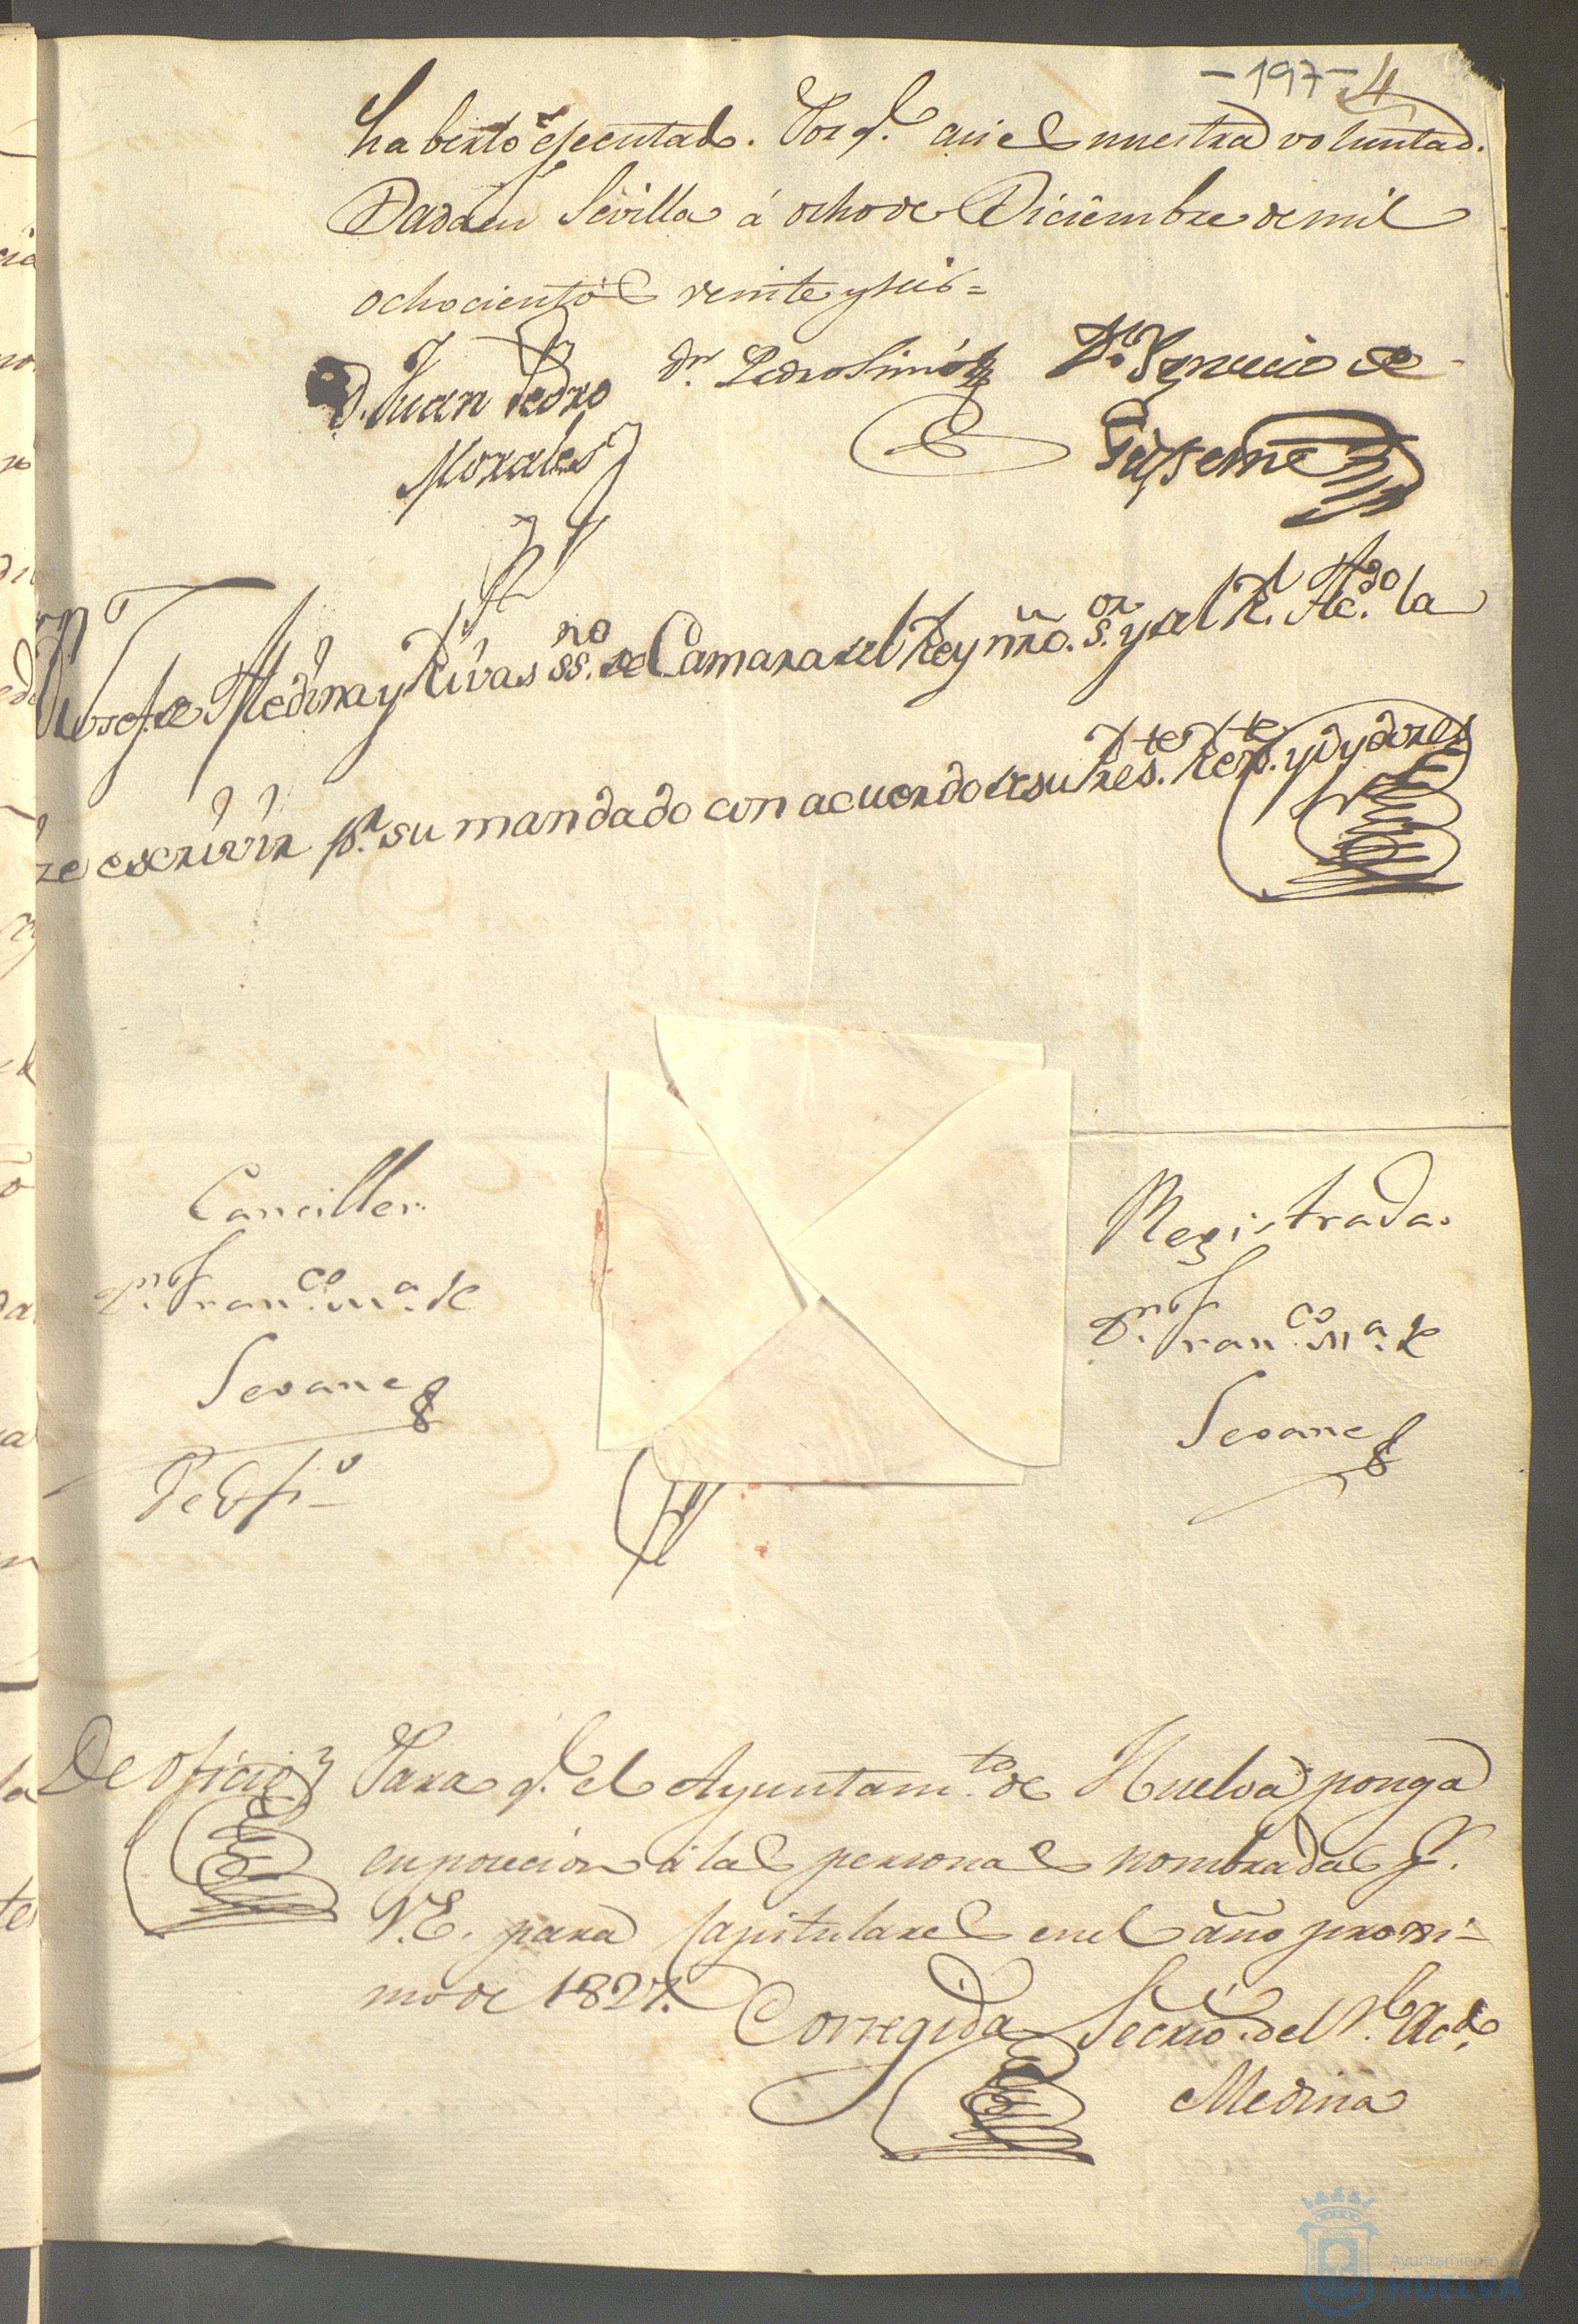 -197- 4
haberlo ejecutado. Por q.e asi es nuestra voluntad.
Dada en Sevilla á ocho de Diciembre de mil
ochocientos veinte y seis=
D. Juan Pedro
Morales
Dn. Pedro Simó
Dn. Ygnacio de
Dn Josef de Medina y Rivas ssno. de Camara del Rey nro. sor. y del Rl. Acdo. la
ze escrivir pr. su mandado con acuerdo de su Restes. Rente. y oydores
Canciller
Dn. Franco. Ma. de
Seoane
Registrada.
Dn. Franco. Ma. de
Seoane
De oficio
Para q.e el Ayuntamto. de Huelva ponga
en posecion á las personas nombradas pr.
V.E. para Capitulares en el año proxi-
mo de 1827.
Corregida
Secrio. del Rl. Acdo.
Medina
Ayuntamiento de
HUELVA